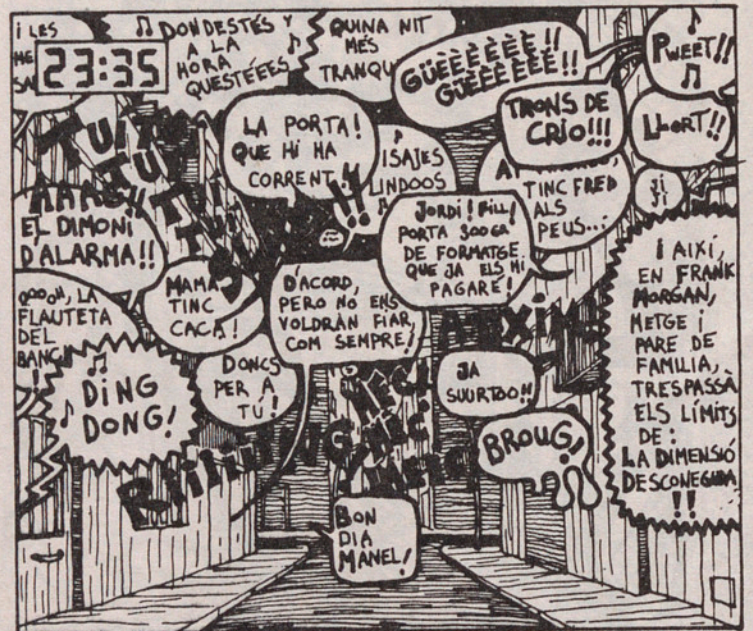 i LES
23:35
DONDESTÉS Y
A LA
HORA
QUESTÉEES
QUINA NIT
MÉS
GÜEÈÈÈÈÈÈ!!
GÜEÈÈÈÈÈÈ!!
PWEET!!
TRONS DE
CRIO!!!
LLORT!!
JI
JI
LA PORTA!
QUE HI HA
CORRENT
!!
ISAJES
LINDOOS
TINC FRED
ALS
PEUS...
EL DIMONI
D'ALARMA!!
JORDI! FILL!
PORTA 300 GR
DE FORMATGE
QUE JA ELS HI
PAGARÉ!
MAMÀ
TINC
CACA!
D'ACORD,
PERO NO ENS
VOLDRÀN FIAR,
COM SEMPRE!
LA
FLAUTETA
DEL
DING
DONG!
DONCS
PER A
TÚ!
JA
SUURTOO!!
BROUG!
I AIXÍ,
EN FRANK
MORGAN,
METGE I
PARE DE
FAMILIA,
TRESPASSÀ
ELS LÍMITS
DE:
LA DIMENSIÓ
DESCONEGUDA
!!
BON
DIA
MANEL!